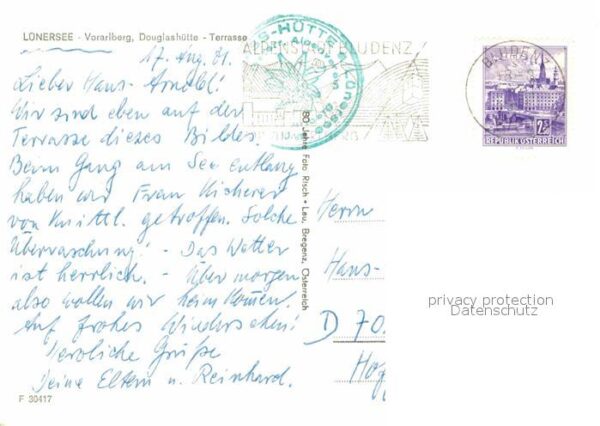 LÜNERSEE - Vorarlberg, Douglashütte - Terrasse
17. Aug. 81.
Lieber Hans-Arnold!
Wir sind eben auf der
Terrasse dieses Bildes.
Beim Gang am See entlang
haben wir Frau Kicherer
von Knittl. getroffen. Solche
Überraschung! - Das Wetter
ist herrlich. - Übermorgen
also wollen wir heim kommen.
Auf frohes Wiedersehen!
Herzliche Grüße
Deine Eltern u. Reinhard.
F 30417
ALPENSTADT BLUDENZ
S-HÜTTE
Lünersee
80 Jahre Foto Risch + Lau, Bregenz, Österreich
BLUDENZ
2S
REPUBLIK ÖSTERREICH
Herrn
Hans-
D 70
privacy protection
Datenschutz